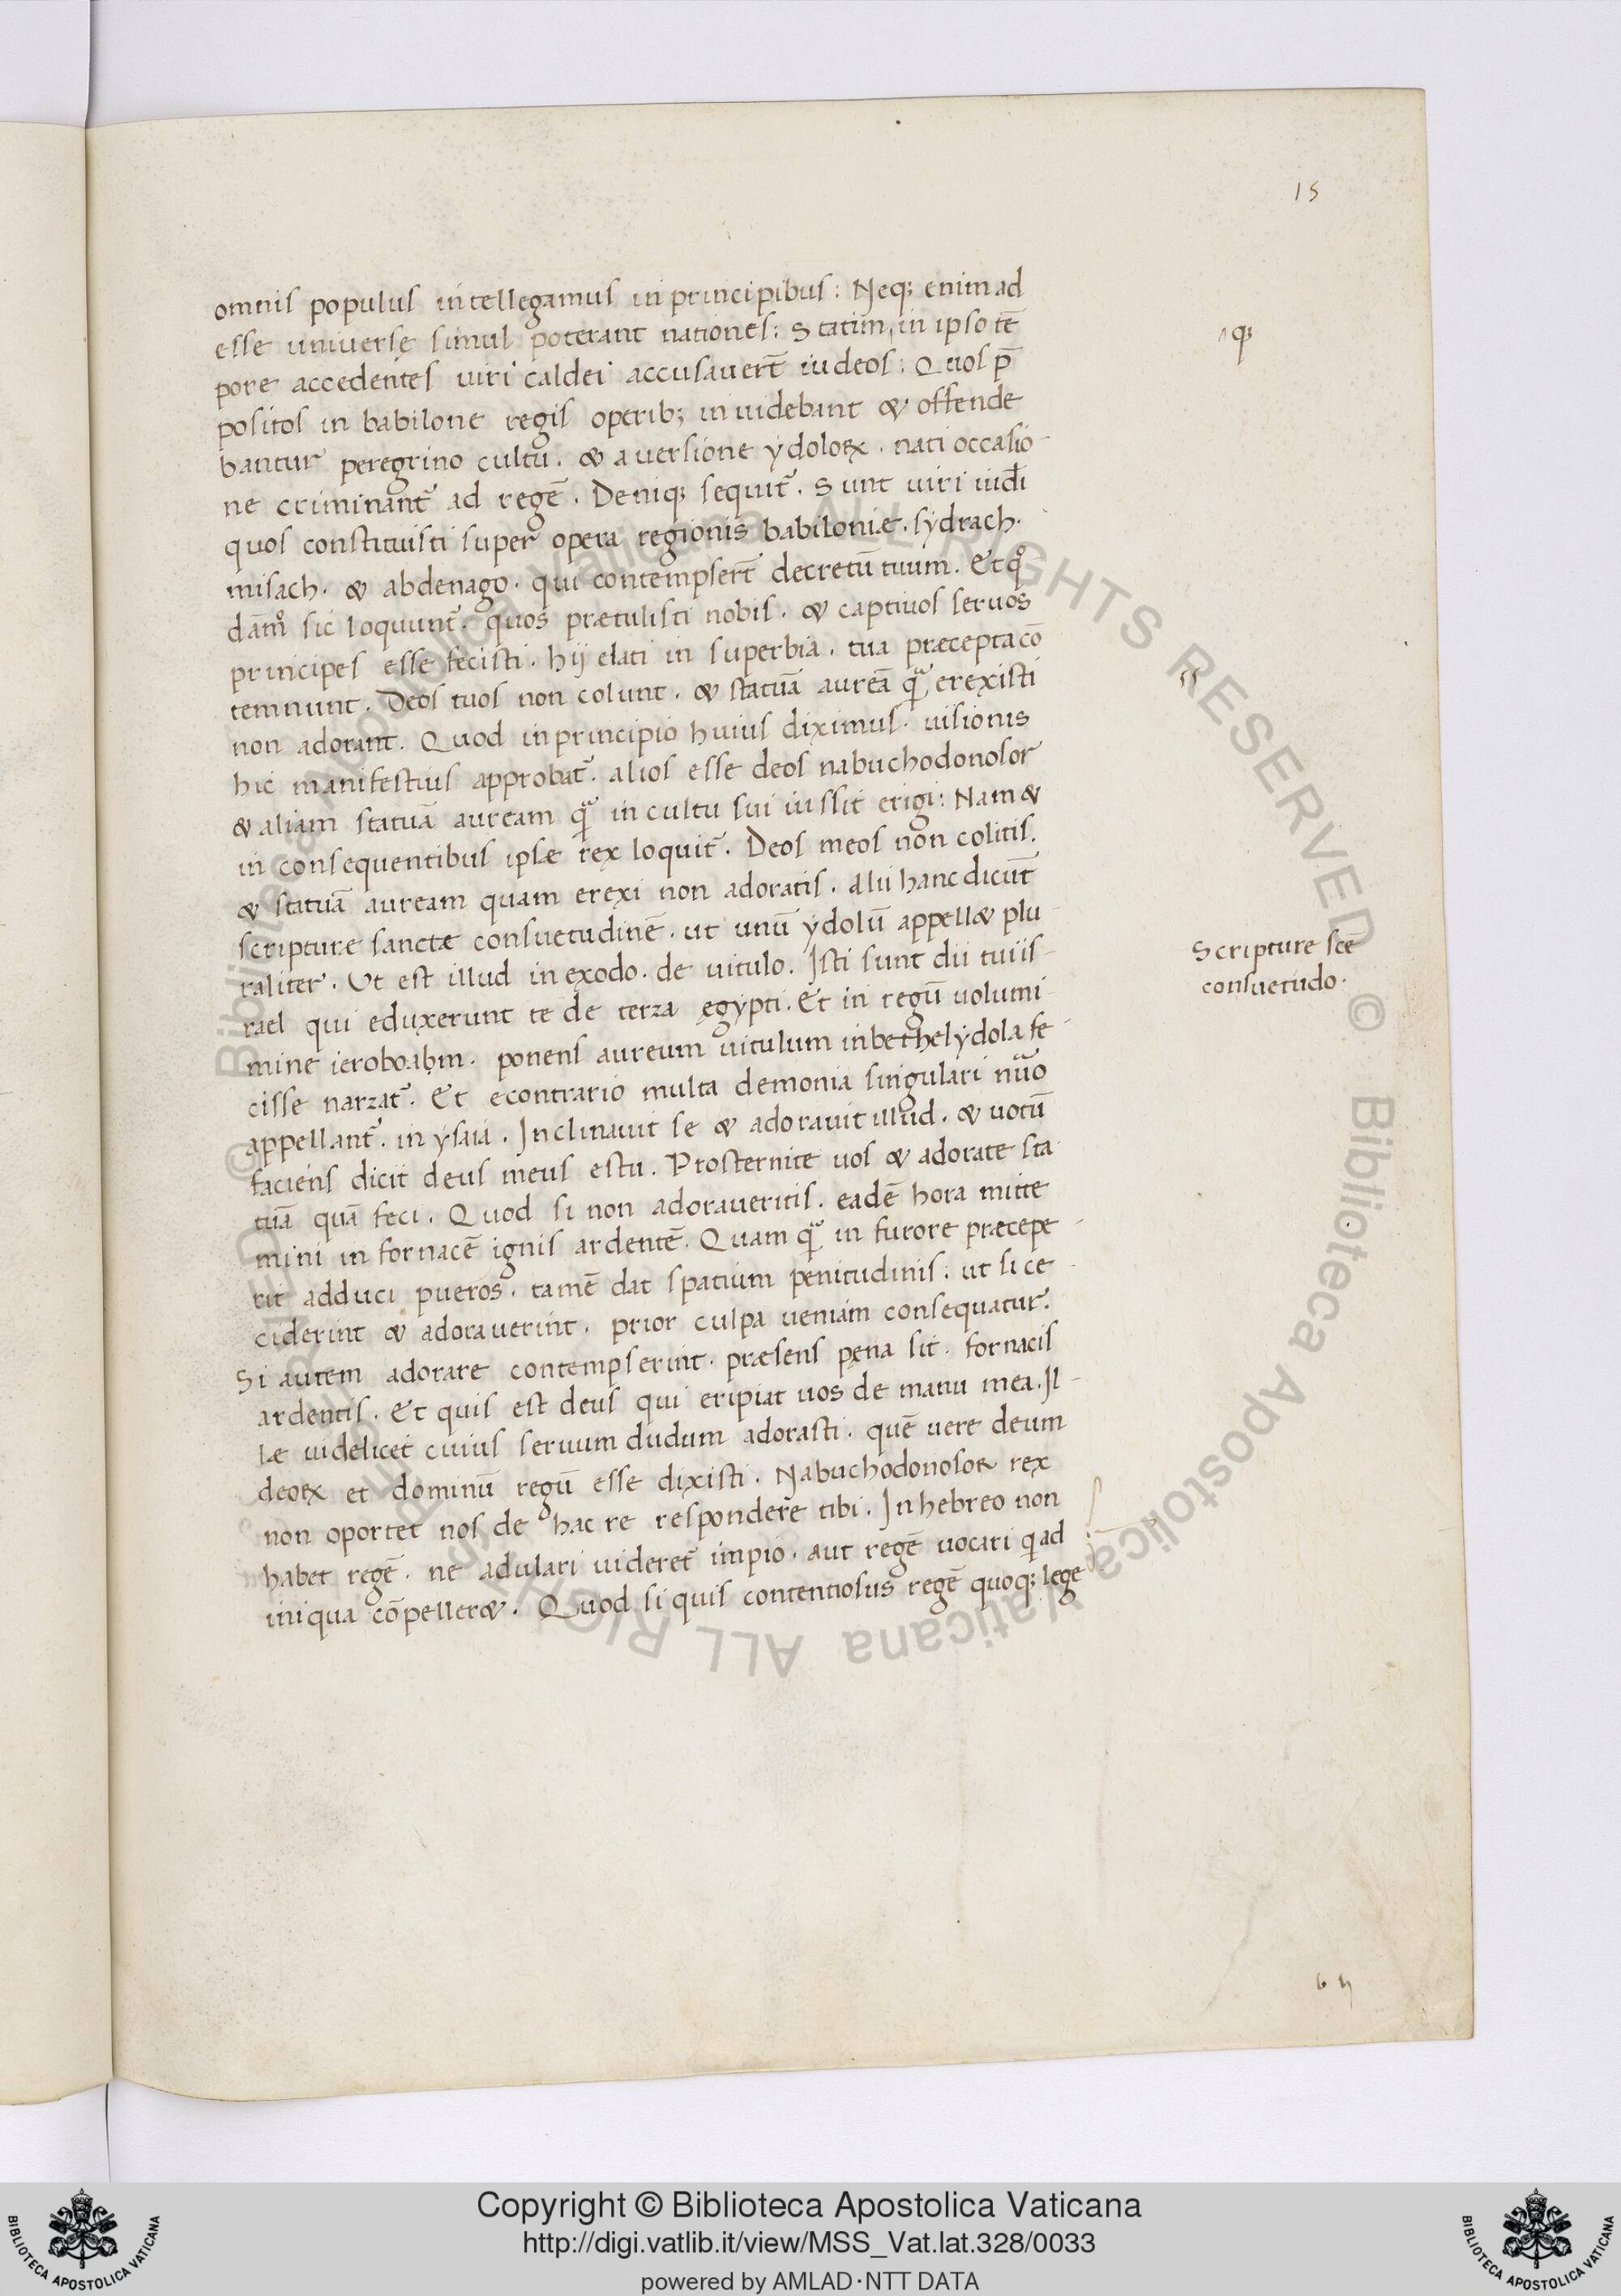 15
omnis populus intellegamus in principibus: Neq; enim ad
esse universę simul poterant nationes: Statim, in ipso tē
pore accedentes viri caldei accusaverт̄ iudeos: Quos p̄
positos in babilone regis operib; invidebant & offende
bantur peregrino cultū. & aversione ydoloꝝ. nati occasio-
ne criminant᷑ ad regē. Deniq; sequit᷑. Sunt viri iudi
quos constituisti super opera regionis babiloniæ. sydrach.
misach. & abdenago. qui contempsert̄ decretū tuum. Et qͦ
dāmͦ sic loquunt᷑. quos prætulisti nobis. & captivos servos
principes esse fecisti. hij elati in superbia. tua præcepta cō
temnunt. Deos tuos non colunt. & statuā aureā qᷓ erexisti
non adorant. Quod in principio huius diximus. visionis
hic manifestius approbat᷑. alios esse deos nabuchodonosor
& aliam statuā auream qᷓ in cultu sui iussit erigi: Nam &
in consequentibus ipse rex loquit᷑. Deos meos non colitis.
& statuā auream quam erexi non adoratis. Alii hanc dicūt
scripturæ sanctæ consuetudinē. ut unū ydolū appell& plu-
raliter. Ut est illud in exodo. de vitulo. Isti sunt dii tui is-
rael qui eduxerunt te de terra ęgypti. Et in regū volumi
mine ieroboabm. ponens aureum vitulum in bethel ydola fe-
cisse narrat᷑. Et econtrario multa demonia singulari nūo
appellant᷑. in ysaia. Inclinavit se & adoravit illud. & votū
faciens dicit deus meus es tu. Prosternite vos & adorate sta
tuā quā feci. Quod si non adoraveritis. eadē hora mitte
mini in fornacē ignis ardentē. Quam qᷓ in furore præcepe-
rit adduci pueros. tamē dat spatium penitudinis. ut si ce-
ciderint & adoraverint. prior culpa veniam consequatur.
Si autem adorare contempserint. præsens pęna sit. fornacis
ardentis. Et quis est deus qui eripiat vos de manu mea. Il-
læ videlicet cuius servum dudum adorasti. quē vere deum
deoꝝ et dominū regū esse dixisti. Nabuchodonosor rex
non oportet nos de hac re respondere tibi. In hebreo non
habet regē. ne adulari videret᷑ impio. aut regē vocari q̄ ad
iniqua cōpeller&. Quod si quis contentiosus regē quoq; lege
q;
Scripture scē
consuetudo.
Copyright © Biblioteca Apostolica Vaticana
http://digi.vatlib.it/view/MSS_Vat.lat.328/0033
powered by AMLAD·NTT DATA
BIBLIOTECA APOSTOLICA VATICANA
BIBLIOTECA APOSTOLICA VATICANA